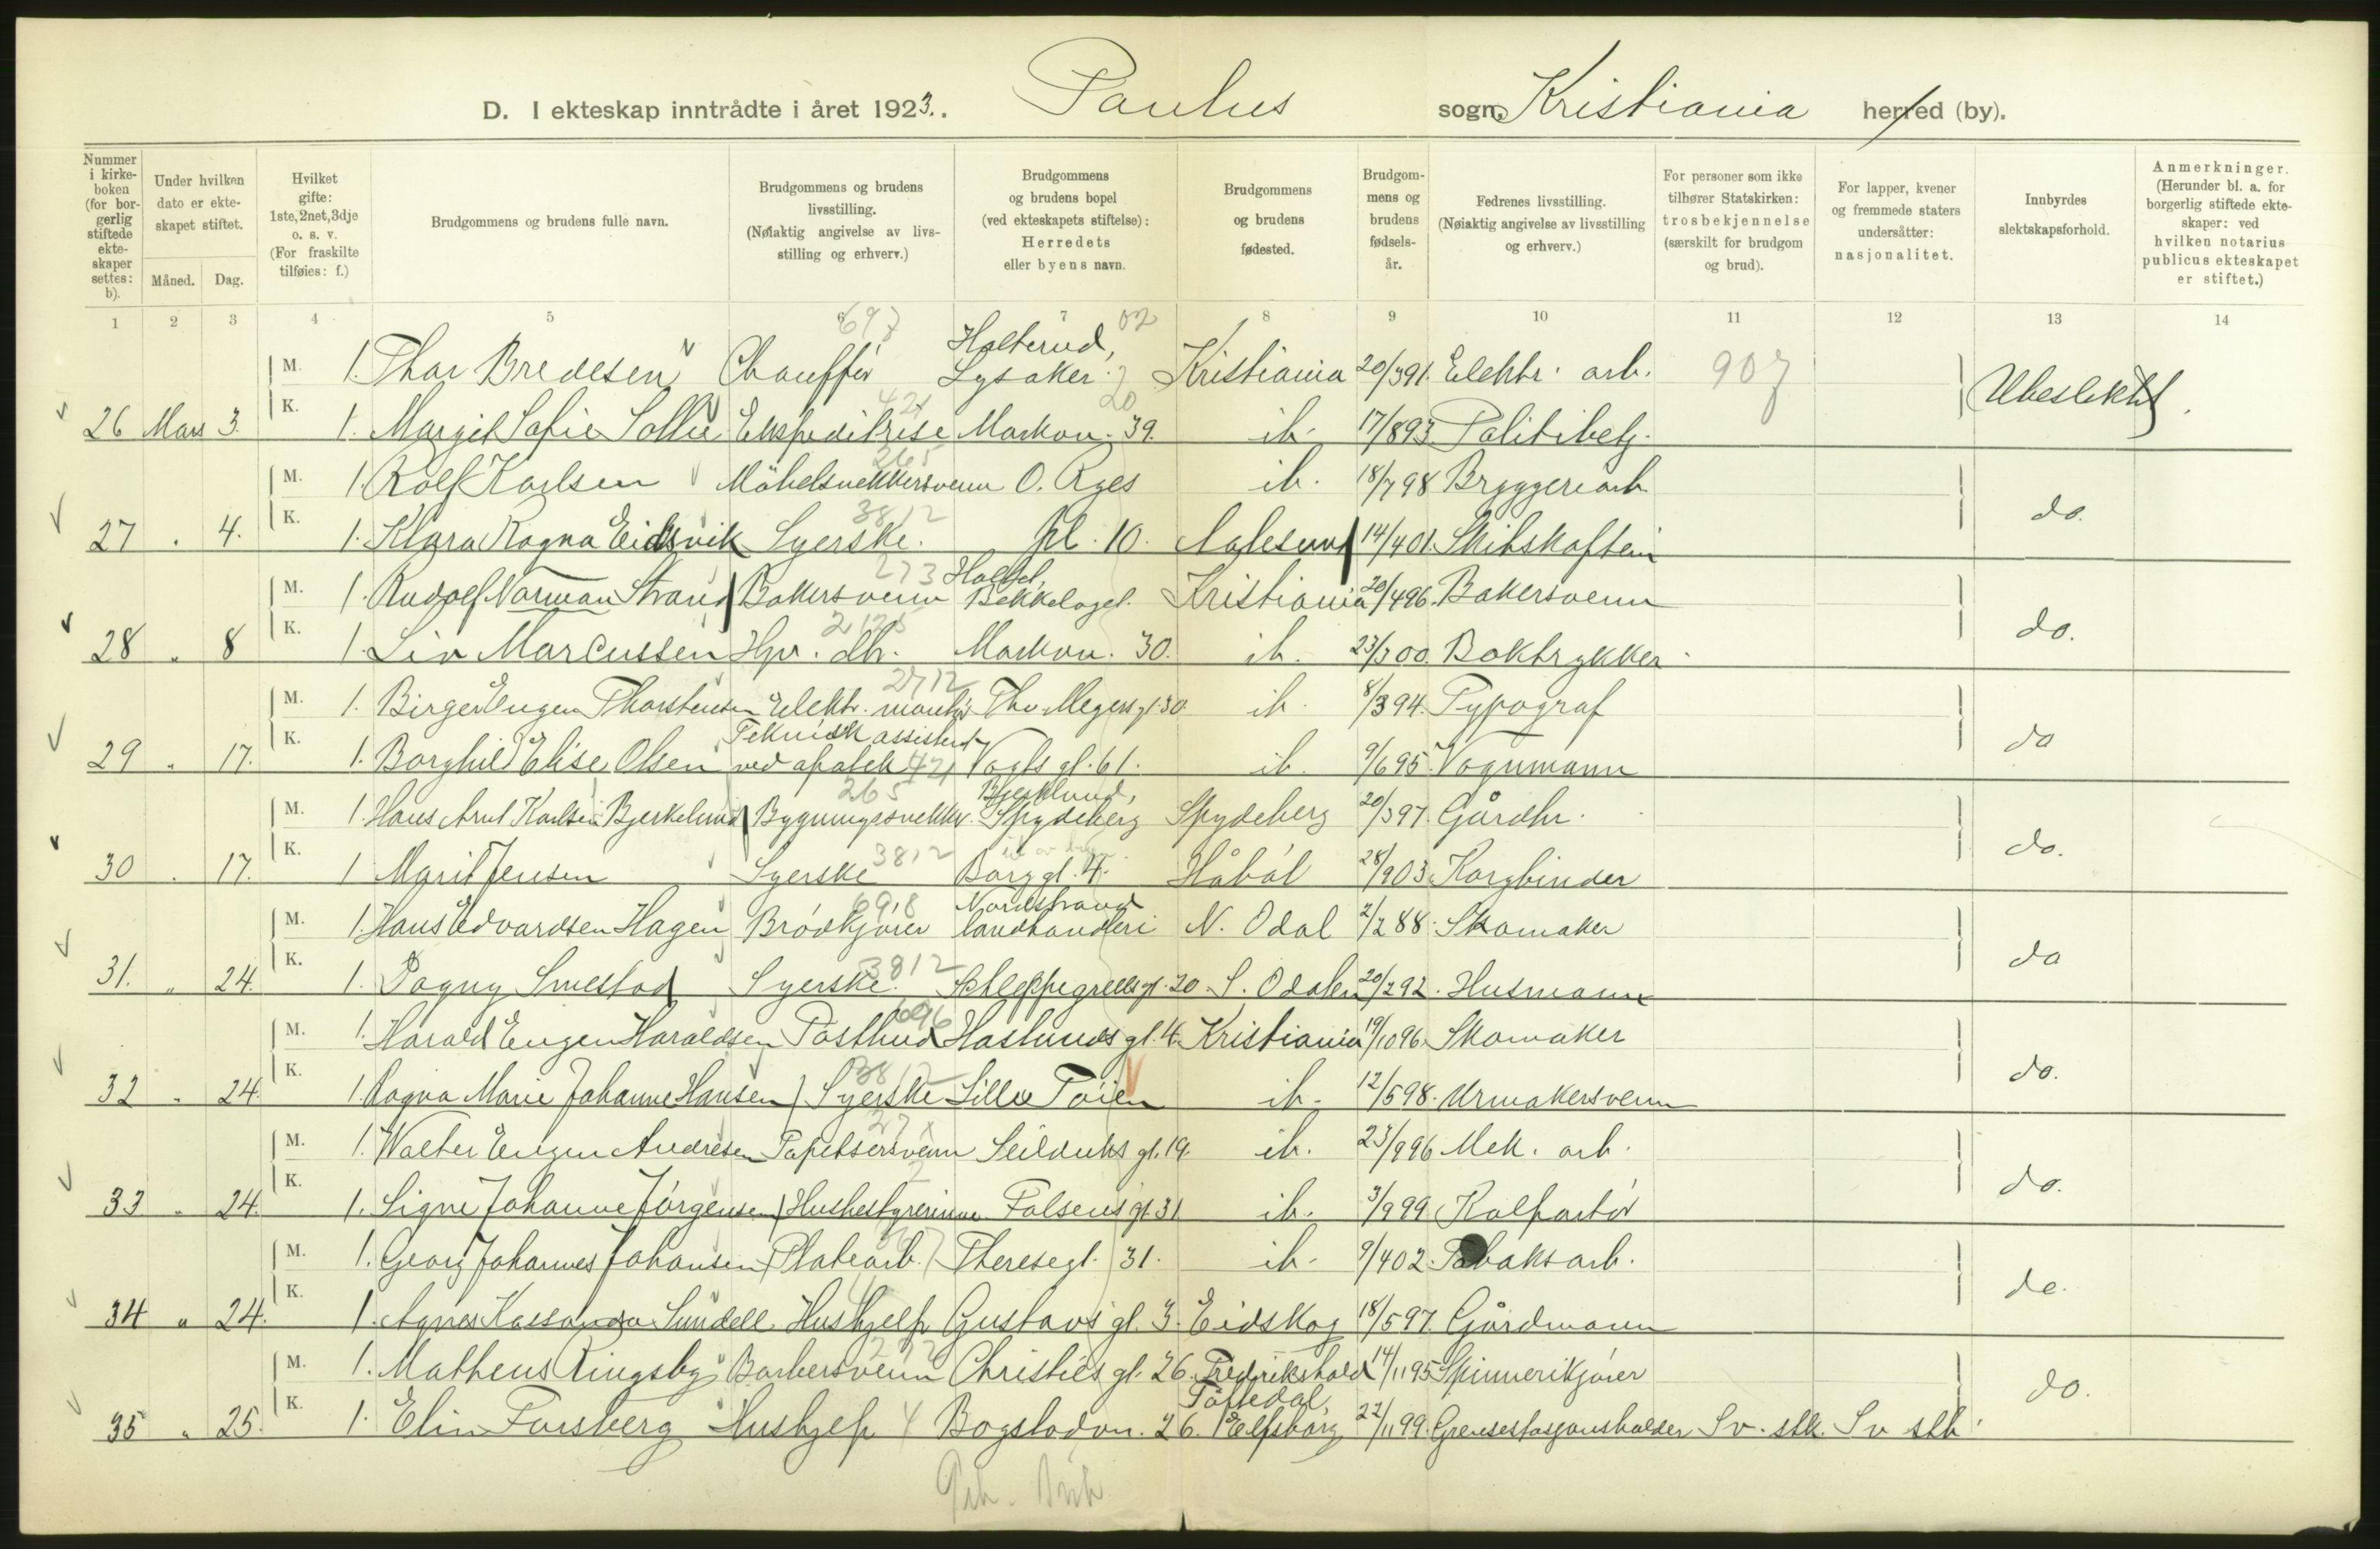 D. I ekteskap inntrådte i året 1923. Paulus sogn, Kristiania herred (by).
Nummer i kirkeboken (for borgerlig stiftede ekteskaper settes: b).
Under hvilken dato er ekteskapet stiftet.
Måned. Dag.
Hvilket gifte: 1ste, 2net, 3dje o. s. v. (For fraskilte tilføies: f.)
Brudgommens og brudens fulle navn.
Brudgommens og brudens livsstilling. (Nøiaktig angivelse av livsstilling og erhverv.)
Brudgommens og brudens bopel (ved ekteskapets stiftelse): Herredets eller byens navn.
Brudgommens og brudens fødested.
Brudgommens og brudens fødselsår.
Fedrenes livsstilling. (Nøiaktig angivelse av livsstilling og erhverv.)
For personer som ikke tilhører Statskirken: trosbekjennelse (særskilt for brudgom og brud).
For lapper, kvener og fremmede staters undersåtter: nasjonalitet.
Innbyrdes slektskapsforhold.
Anmerkninger. (Herunder bl. a. for borgerlig stiftede ekteskaper: ved hvilken notarius publicus ekteskapet er stiftet.)
1 2 3 4 5 6 7 8 9 10 11 12 13 14
697 02
M. 1. Thor Bredesen Chauffør Holterud, Lysaker Kristiania 20/391. Elektr. arb. 907
421 20
26 Mars 3. K. 1. Margit Sofie Sollie Ekspeditrise Markv. 39. ib. 17/893 Politibetj. Ubeslektet.
265
M. 1. Rolf Karlsen Möbelsnekkersvenn O. Ryes ib. 18/798 Bryggeriarb.
3812
27 " 4. K. 1. Klara Ragna Eidsvik Syerske. pl. 10. Aalesund 14/401. Skibskaptein do.
273
M. 1. Rudolf Norman Strand Bakersvenn Bekkelaget. Kristiania 20/496. Bakersvenn
2125
28 " 8 K. 1. Liv Marcussen Hpr. db. Markv. 30. ib. 23/300. Boktrykker do.
2712
M. 1. Birger Eugen Thorstensen Elektr. montør Thv. Meyers gt. 30. ib. 8/394. Typograf
29 " 17. K. 1. Borghild Elise Olsen Teknisk assistent ved apotek 421 Vogts gt. 61. ib. 9/695. Vognmann do
265
M. 1. Hans Arnt Karlsen Bjerkelund Bygningssnekker. Bjerklund, Spydeberg Spydeberg 20/397. Gårdbr.
3812
30 " 17. K. 1 Marit Jensen Syerske Borggt. 4. Håböl 28/903. Korgbinder do.
698
M. 1. Hans Edvardsen Hagen Brödkjörer Nordstrand landhandleri N. Odal 2/288. Skomaker
3812
31. " 24. K. 1. Dagny Smestad Syerske. Schleppegrells gt. 20. S. Odalen 20/292. Husmann do
696
M. 1. Harald Eugen Haraldsen Postbud Haslunds gt. 4. Kristiania 19/1096. Skomaker
3812
32 " 24. K. 1. Ragna Marie Johanne Hansen Syerske Lille Töien ib. 12/598. Urmakersvenn do.
M. 1. Walter Eugen Andresen Tapetsersvenn Seilduks gt. 19. ib. 23/996 Mek. arb.
33 " 24. K. 1. Signe Johanne Jörgensen Husbestyrerinne Falsens gt. 31. ib. 3/999 Kolportör do.
M. 1. Georg Johannes Johansen Platearb. Theresegt. 31. ib. 9/402. Tobaksarb.
34 " 24. K. 1. Agnes Kassandra Sundell Hushjelp Gustavs gt. 3. Eidskog 18/597. Gårdmann do.
M. 1. Matheus Ringsby Barbersvenn Christies gt. 26. Fredrikshald 14/1195 Spinnerikjörer
35 " 25. K. 1. Elin Forsberg Hushjelp 4 Bogstadvn. 26. Töftedal, Elfsborg 22/1199. Grensestasjonsholder Sv. stk. Sv stb. do.